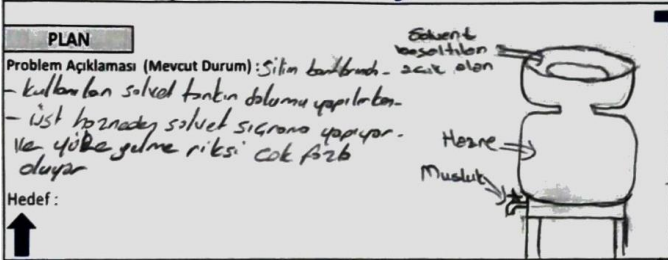 PLAN
Problem Açıklaması (Mevcut Durum) : Silim bantlarında -
- kullanılan solvet tankın dolumu yapılırken -
- üst hazneden solvet sıçrama yapıyor.
ve yüze gelme riksi çok fazla
oluyor
Hedef :
Solvent
boşaltılan
açık alan
Hazne
Musluk